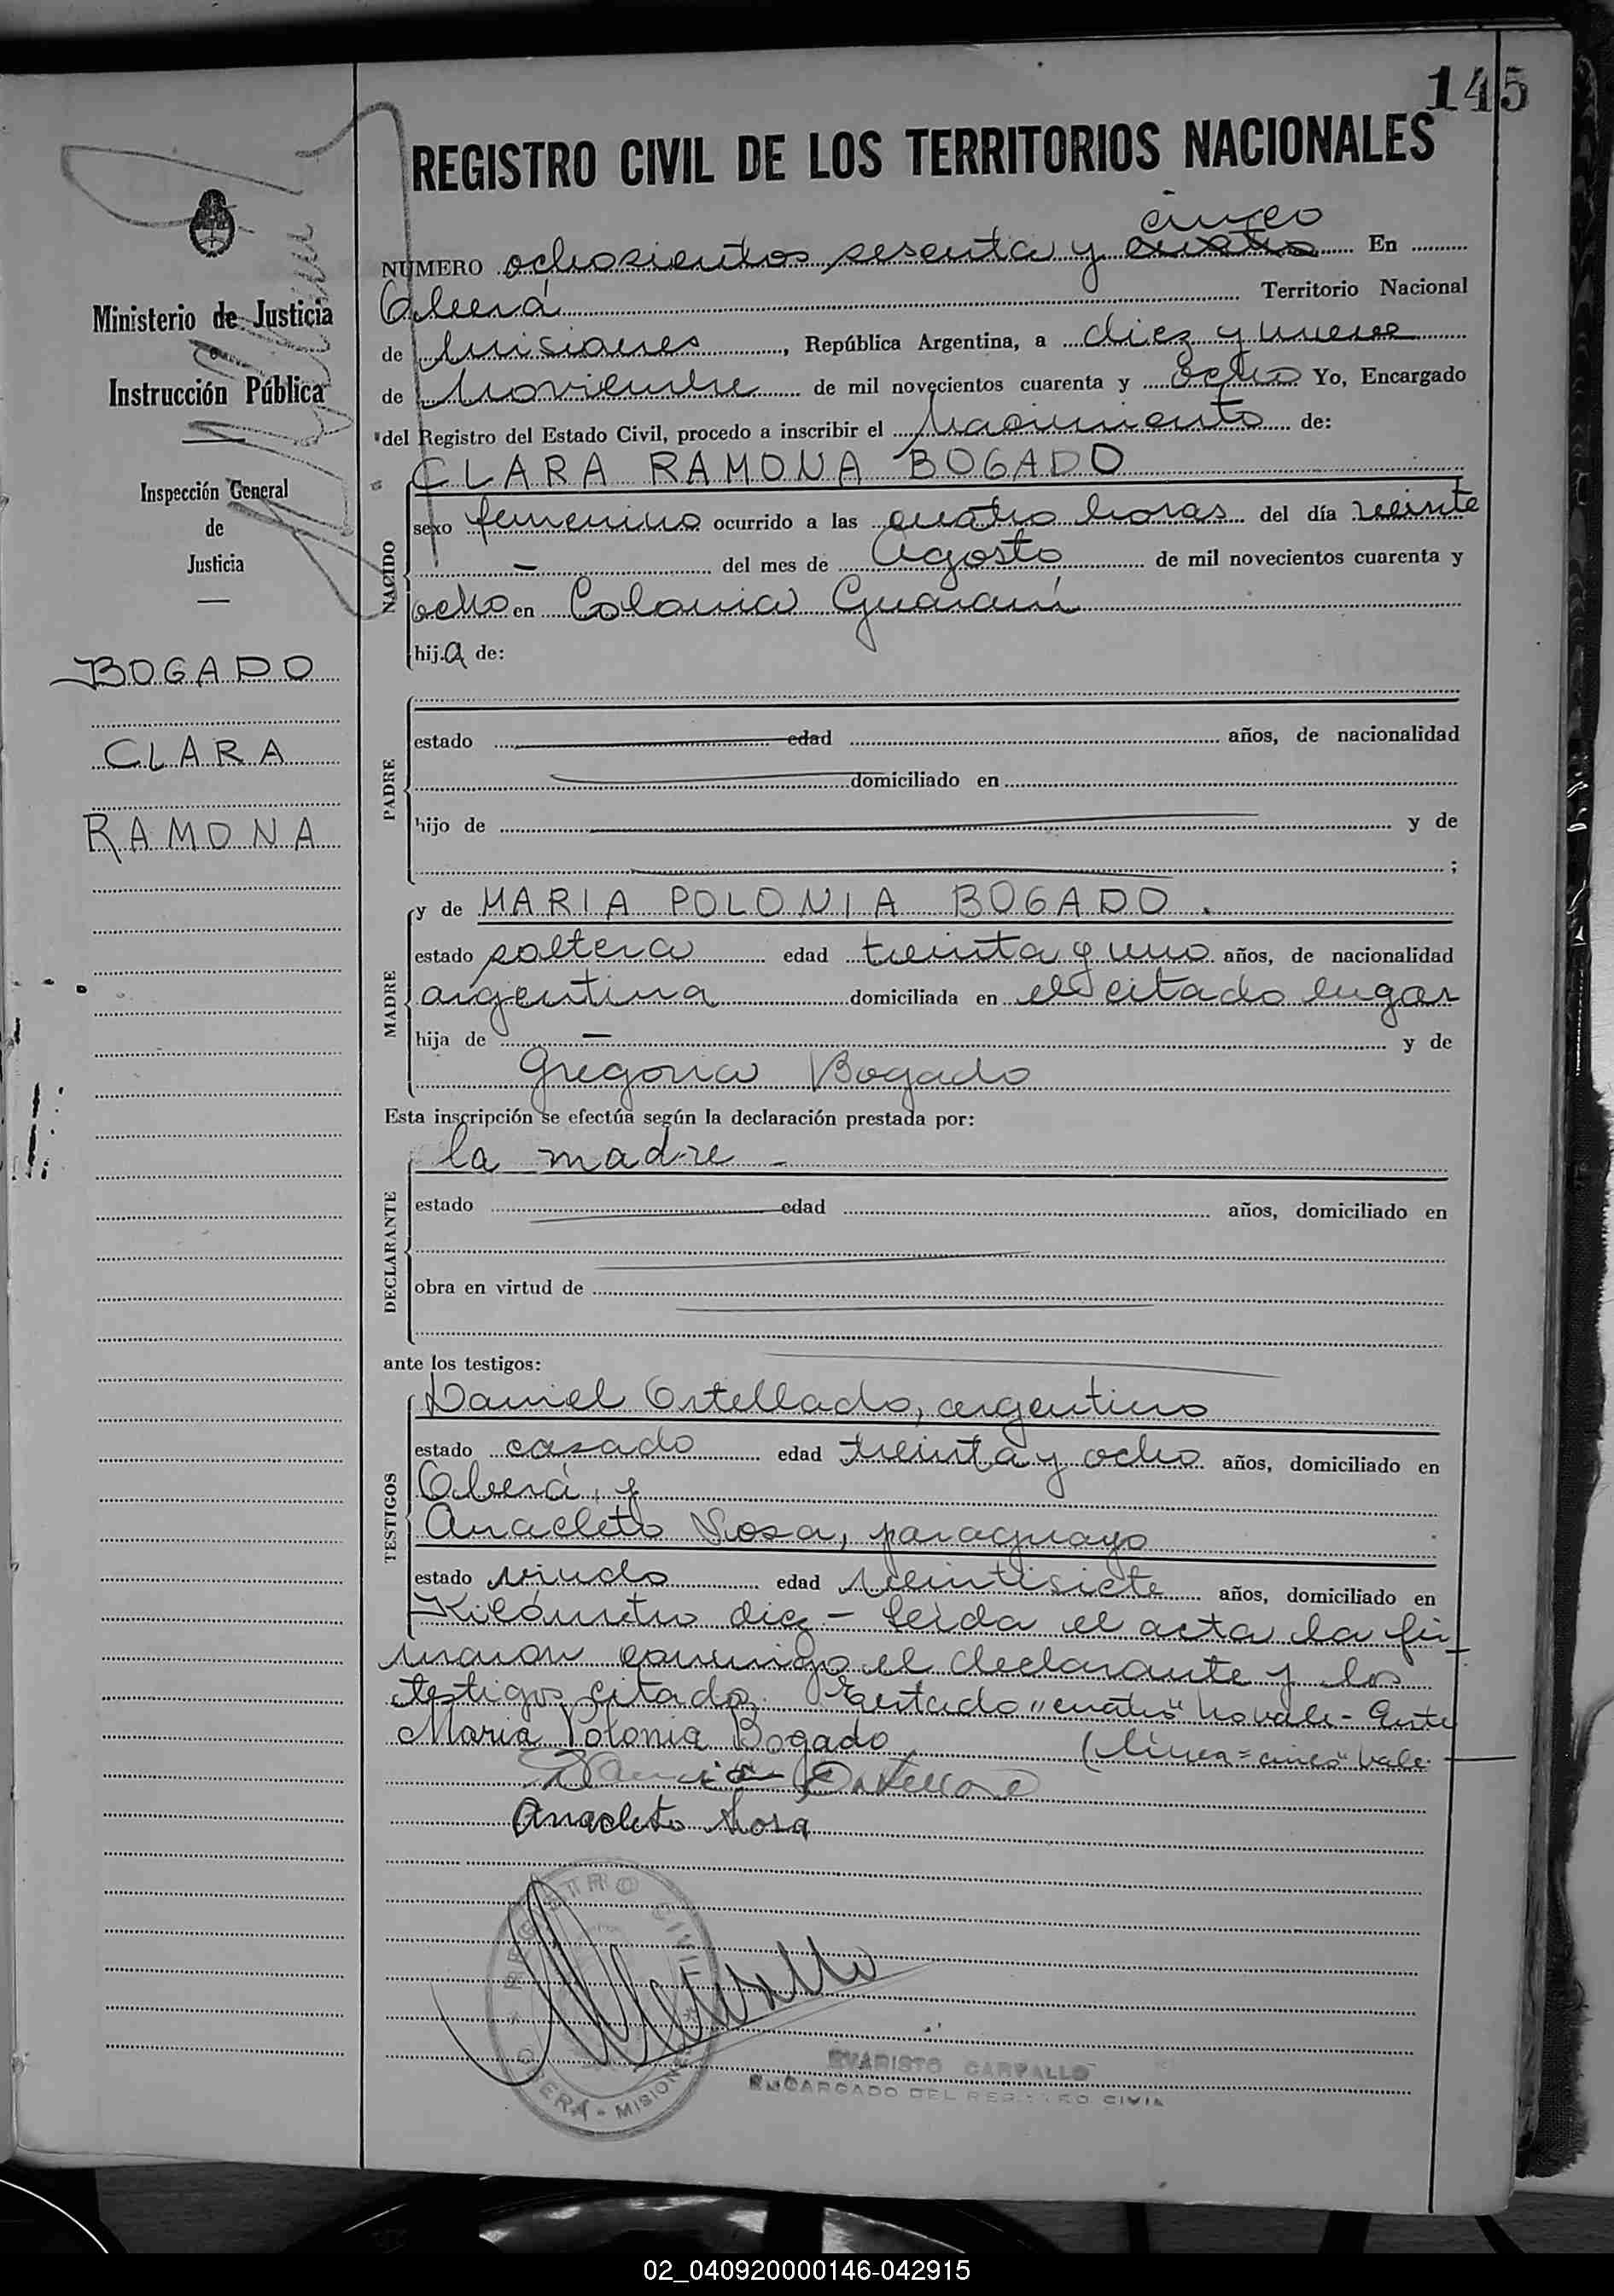 145
REGISTRO CIVIL DE LOS TERRITORIOS NACIONALES
cinco
NUMERO ochosientos sesenta y cuatro En
Oberá Territorio Nacional
de Misiones, República Argentina, a diez y nueve
de Noviembre de mil novecientos cuarenta y ocho Yo, Encargado
del Registro del Estado Civil, procedo a inscribir el Nacimiento de:
CLARA RAMONA BOGADO
NACIDO
sexo femenino ocurrido a las cuatro horas del día veinte
— del mes de Agosto de mil novecientos cuarenta y
ocho en Colonia Guaraní
hija de:
PADRE
estado edad años, de nacionalidad
domiciliado en
hijo de y de
;
y de MARIA POLONIA BOGADO.
MADRE
estado soltera edad treinta y uno años, de nacionalidad
argentina domiciliada en el citado lugar
hija de — y de
Gregoria Bogado
Esta inscripción se efectúa según la declaración prestada por:
la madre -
DECLARANTE
estado edad años, domiciliado en
obra en virtud de
ante los testigos:
TESTIGOS
Daniel Ortellado, argentino
estado casado edad treinta y ocho años, domiciliado en
Oberá, y
Anacleto Sosa, paraguayo
estado viudo edad veintisiete años, domiciliado en
Kilómetro diez - Leída el acta la fir-
maron conmigo el declarante y los
testigos citados. Testado "cuatro" no vale - Entre
Maria Polonia Bogado (línea = cinco" vale.
Anacleto Sosa
REGISTRO CIVIL
OBERA - MISIONES
EVARISTO CARVALLO
ENCARGADO DEL REGISTRO CIVIL
Ministerio de Justicia
e
Instrucción Pública
Inspección General
de
Justicia
BOGADO
CLARA
RAMONA
02_040920000146-042915